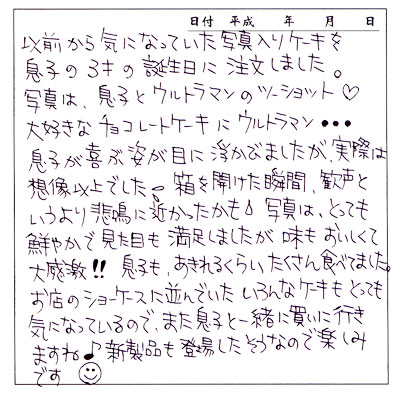 日付 平成 年 月 日
以前から気になっていた写真入りケーキを
息子の3才の誕生日に注文しました。
写真は、息子とウルトラマンのツーショット♡
大好きなチョコレートケーキにウルトラマン•••
息子が喜ぶ姿が目に浮かびましたが、実際は
想像以上でした。箱を開けた瞬間、歓声と
いうより悲鳴に近かったかも 写真は、とっても
鮮やかで見た目も満足しましたが 味もおいしくて
大感激!! 息子も、あきれるくらい たくさん食べてました。
お店のショーケースに並んでいた いろんなケーキもとっても
気になっているので、また息子と一緒に買いに行き
ますね♪ 新製品も登場したそうなので楽しみ
です☺